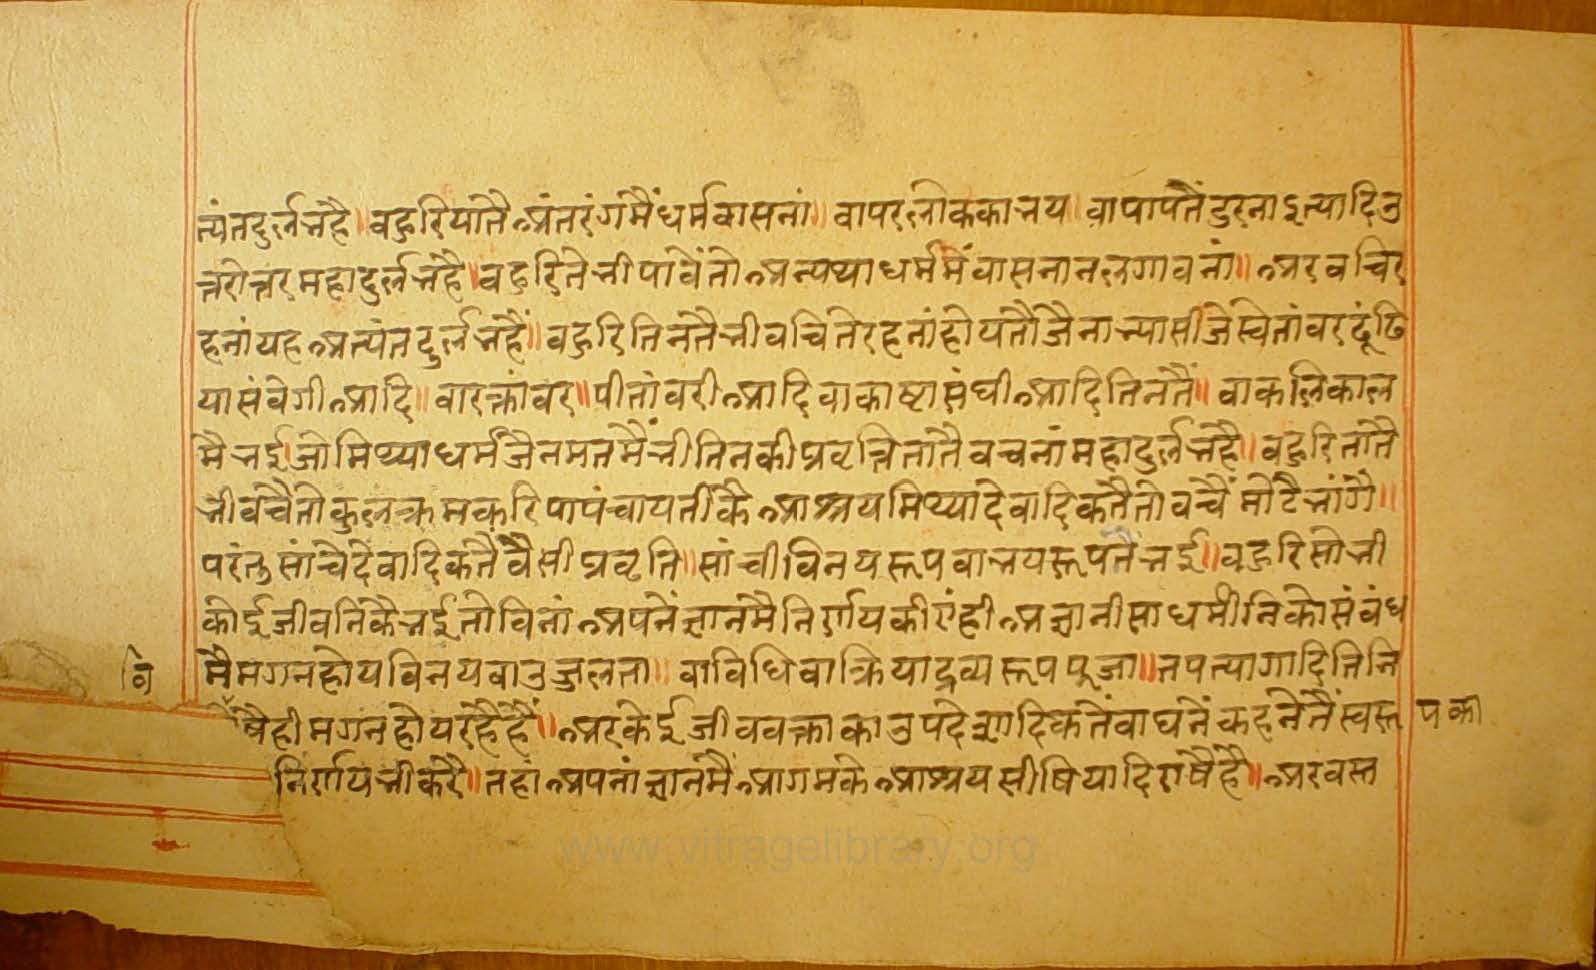 त्यंतदुर्लभहै॥ वहुरियातै अंतरंगमैंधर्मवासनां॥ वापरलोककाभय॥ वापापतैंडुरना इत्यादिउ
त्तरोत्तरमहादुर्लभहै॥ वहुरितेभीपावैंतो अन्यथाधर्ममैंवासनानलगावनां॥ अरवचिर
हनांयह अत्यंतदुर्लभहैं॥ वहुरितिनतैभीवचितेरहनांहोयतौजैनाभ्यासीजेस्वेतांवरढूंढि
यासंवेगीआदि॥ वारक्तांवर॥ पीतांवरीआदिवाकाष्टासंघीआदितिनतैं॥ वाकलिकाल
मैभईजोमिथ्याधर्मजैनमतमैंभीतिनकीप्रवृत्तितातैवचनांमहादुर्लभहै॥ वहुरितातै
भीवचैतोकुलक्रमकरिपापंचायतीकै आश्रयमिथ्यादेवादिकतैतोवचैंमोटैभांगै॥
परंतुसांचैदेवादिकतैंवैसीप्रवृति॥ सांचीविनयरूपवाभयरूपतैंभई॥ वहुरिसोभी
कोईजीवनिकैभईतोविनां अपनेंज्ञानमैनिर्णयकीएंही अज्ञानीसाधर्मीनिकोसंवंध
मैमगनहोयविनयवाउजुलता॥ वाविधिवाक्रियाद्रव्यरूपपूजा॥ तपत्यागादितिनि
वि
षैहीमगनहोयरहैंहैं॥ अरकेईजीववक्ताकाउपदेशादिकतेंवाघनेंकहनेतैंस्वरूपका
निर्णयभीकरै॥ तहां अपनांज्ञानमै आगमके आश्रयसीषियादिराषैहै॥ अरवस्त
www.vitragelibrary.org